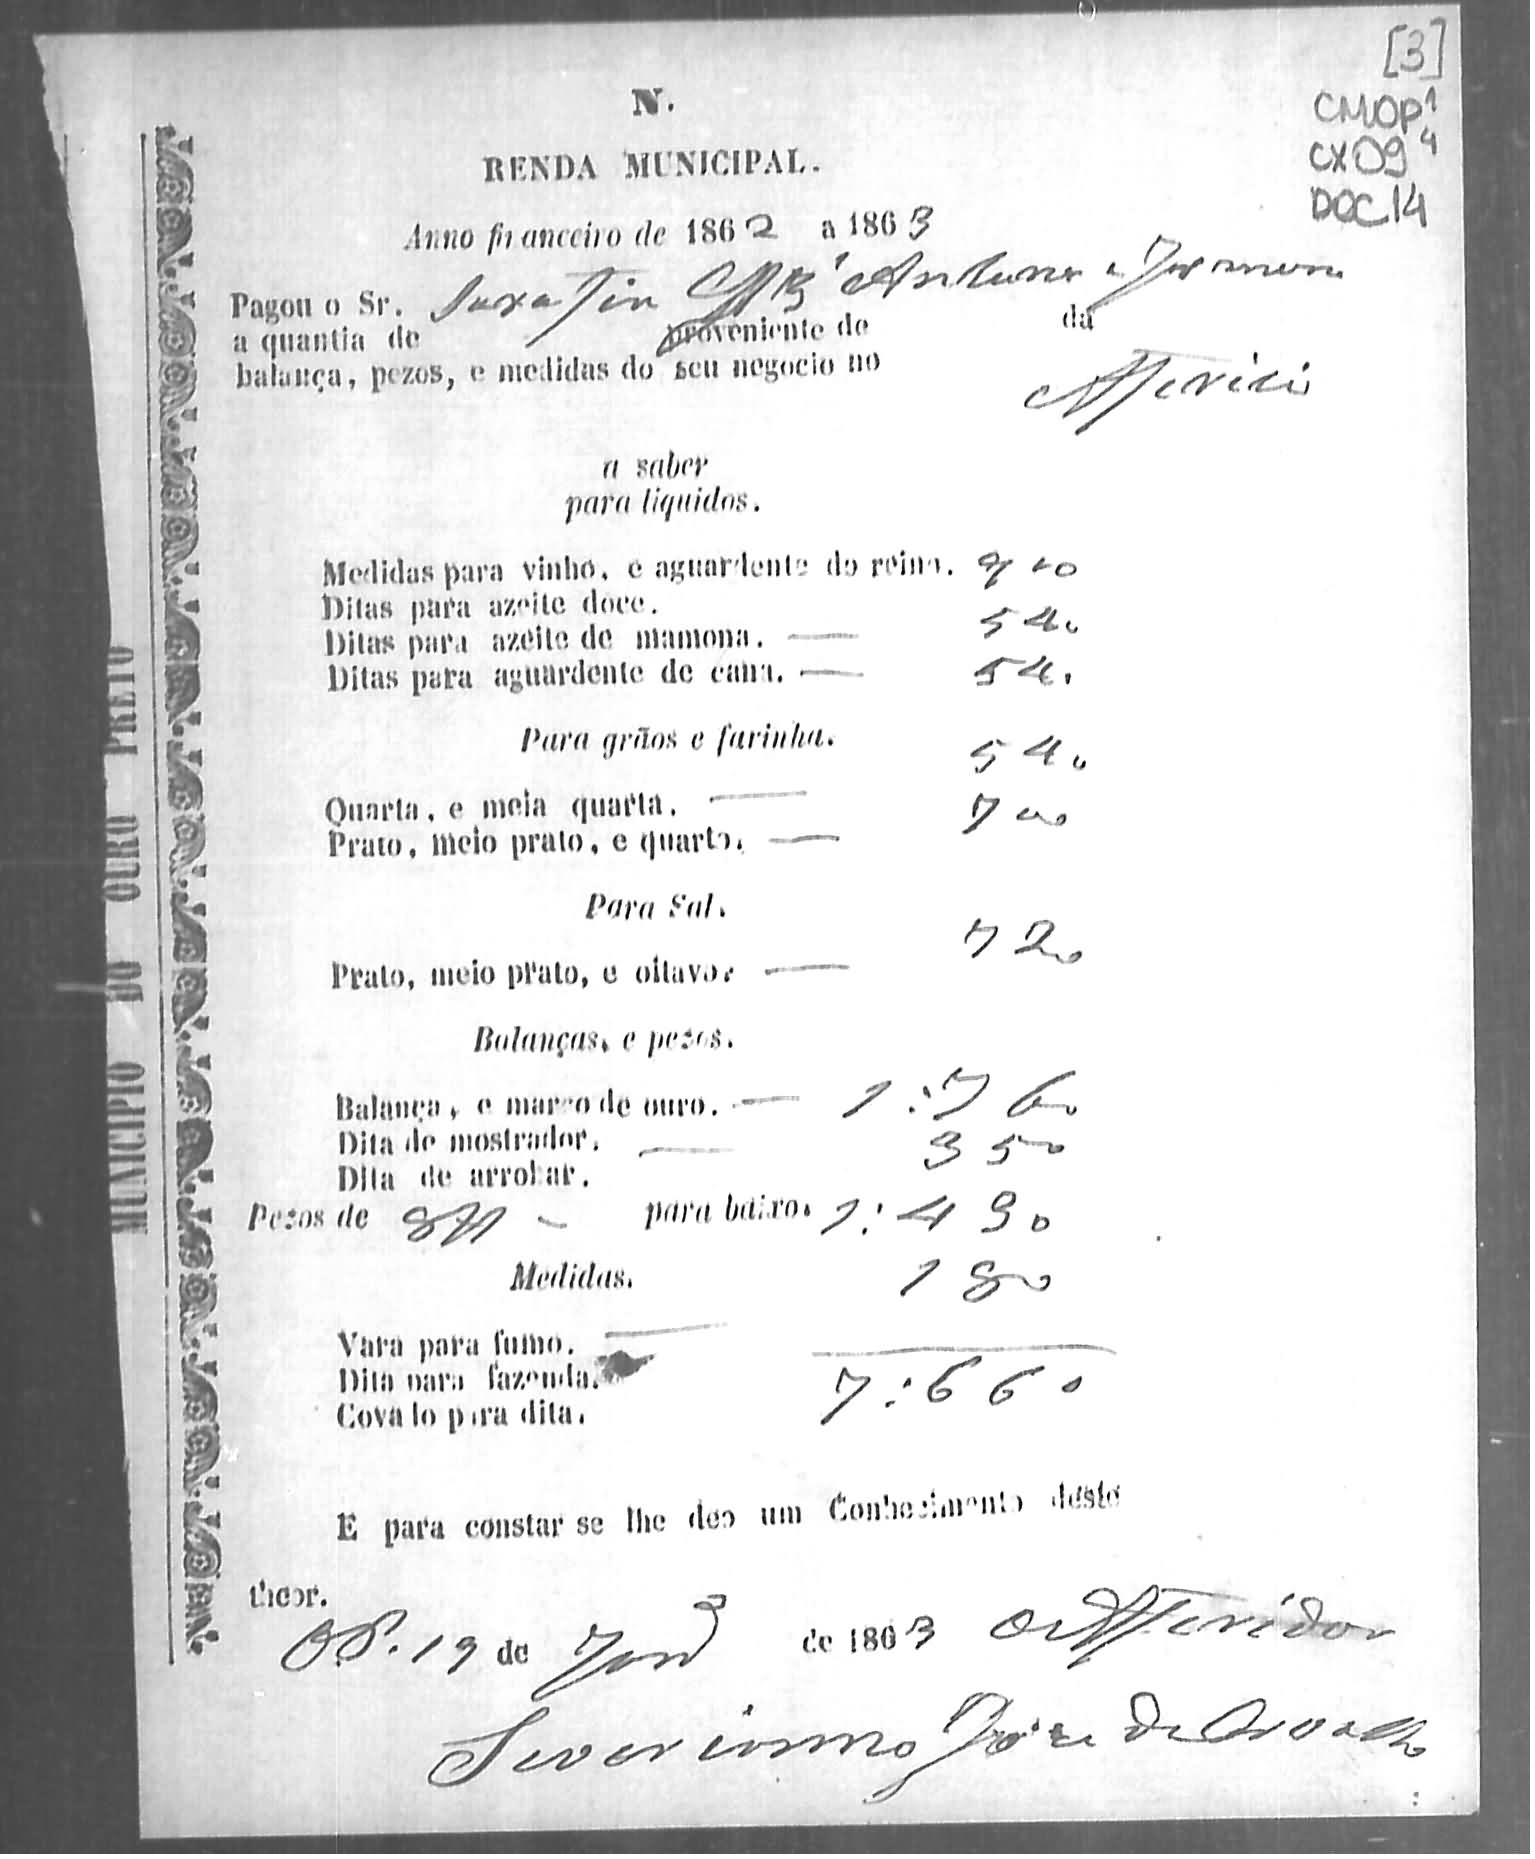 [3]
CMOP1
CX09 4
DOC14
N.
RENDA MUNICIPAL.
Anno financeiro de 1862 a 1863
Pagou o Sr.
a quantia de proveniente do da
balança, pezos, e medidas do seu negocio no Afericão
a saber
para liquidos.
Medidas para vinho, e aguardente do reino.
Ditas para azeite doce. 540
Ditas para azeite de mamona. —
Ditas para aguardente de cana. — 540
Para grãos e farinha. 540
Quarta, e meia quarta. — 700
Prato, meio prato, e quarto. —
Para Sal. 720
Prato, meio prato, e oitavo. —
Balanças, e pezos.
Balança, e marco de ouro. — 1:760
Dita de mostrador. — 350
Dita de arrobar.
Pezos de para baixo. 1:430
Medidas. 180
Vara para fumo. —
Dita para fazenda. 7:660
Covado para dita.
E para constar se lhe deo um Conhecimento deste
theor.
OP. 19 de Janº de 1863 O Afferidor
Severianno José de Carvalho
MUNICIPIO DO OURO PRETO